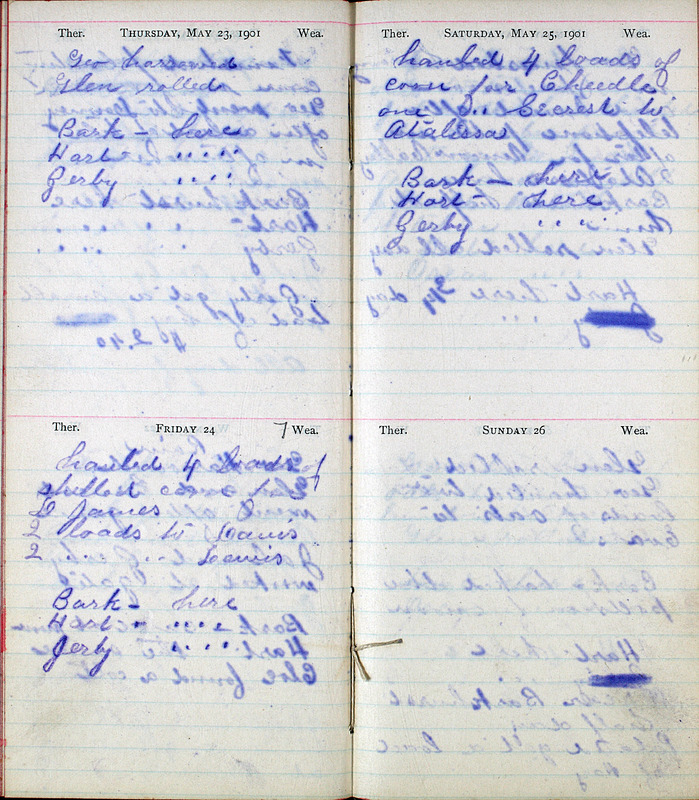 Ther. THURSDAY, MAY 23, 1901 Wea.
Geo harrowed
Glen rolled
Bark – here
Hart " "
Gerby " "
Ther. FRIDAY 24 7 Wea.
hauled 4 loads of
shelled corn
James
2 loads to Lewis
2 " " Lewis
Bark – here
Hart " "
Jerby " "
Ther. SATURDAY, MAY 25, 1901 Wea.
hauled 4 loads of
corn for Cheedle
one Secrest to
Atalissa
Bark – here
Hart – here
Gerby " "
Ther. SUNDAY 26 Wea.